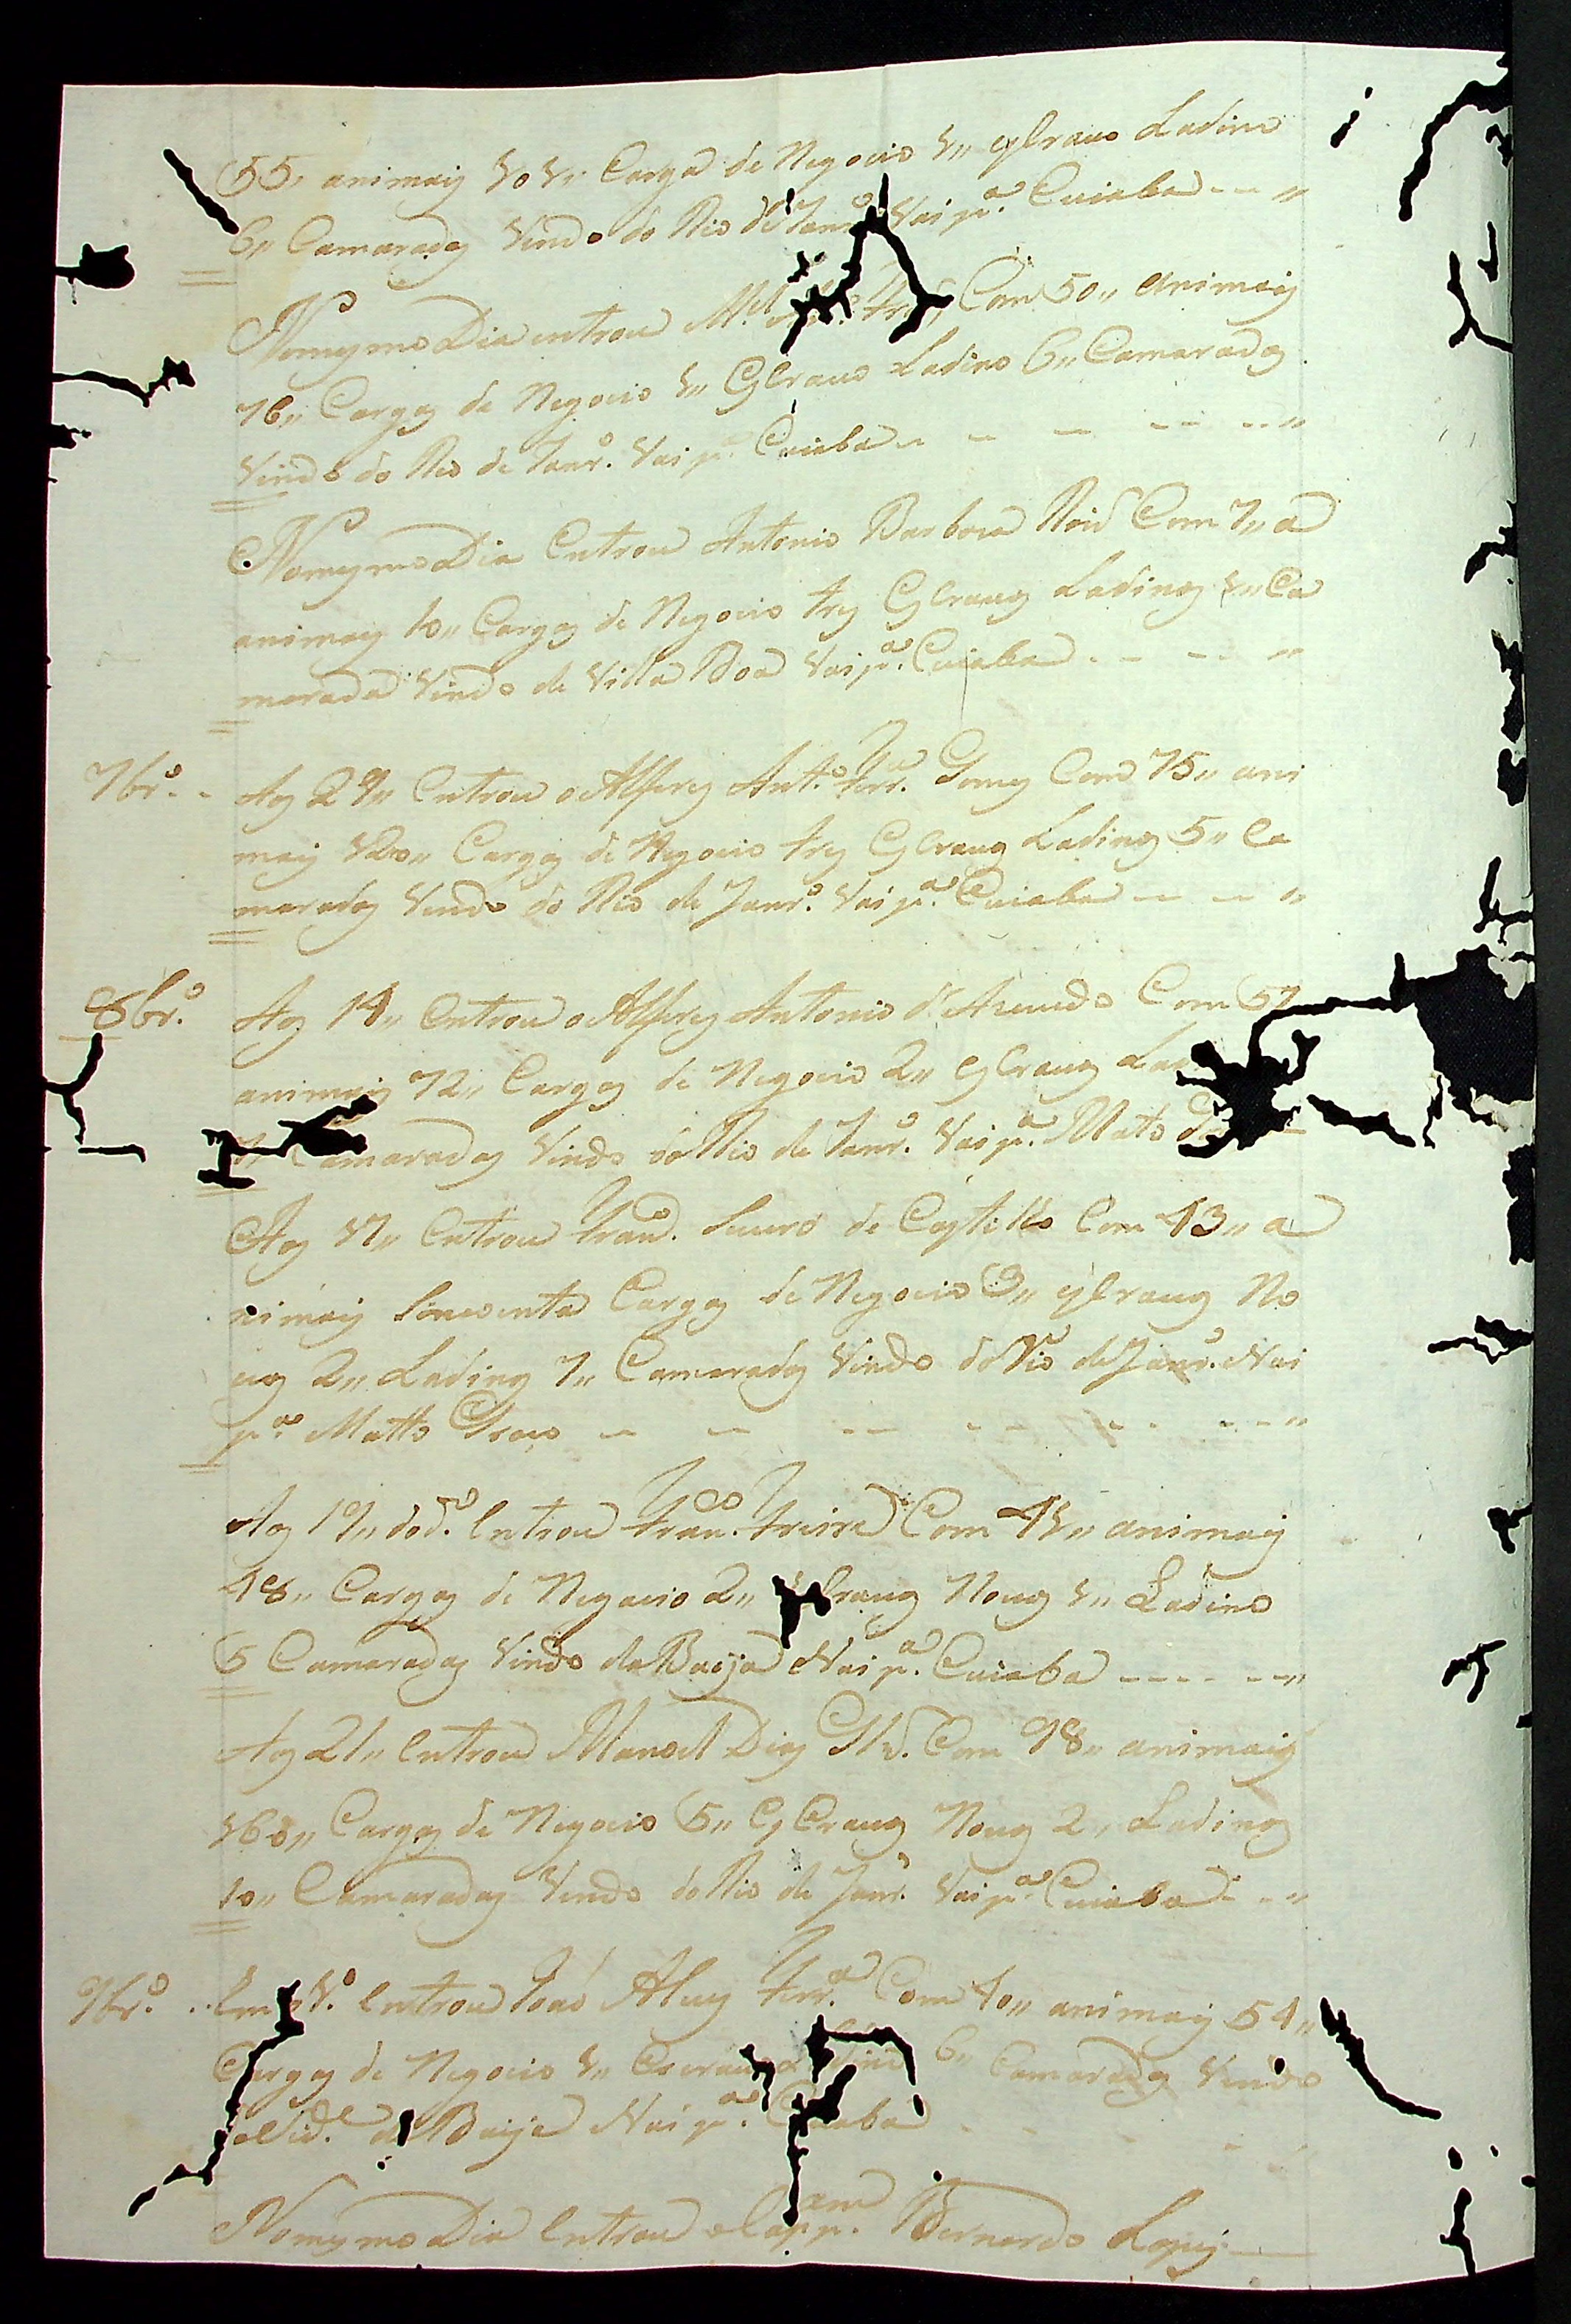 55,, animais 101,, Carga de Negocio 1,, esCravo Ladino
6,, Camaradas Vindo do Rio de Janr.º Vai p.ª Cuiaba - - ,,
Nomesmo Dia entrou M.el Com 50,, animais
76,, Cargas de Negocio 1,, EsCravo Ladino 6,, Camaradas
Vindo do Rio de Janr.º Vai p.ª Cuiaba - - - - - ,,
Nomesmo Dia Entrou Antonio Barboza Com 7,, a
animais 10,, Cargas de Negocio tres EsCravos Ladinos 1,, Ca
marada Vindo de Villa Boa Vai p.ª Cuiaba - - - - ,,
7br.º - - Aos 29,, Entrou o Alferes Ant.º Ferr.ª Gomes Com 75,, ani
mais 120,, Cargas de Negocio tres EsCravos Ladinos 5,, Ca
maradas Vindo do Rio de Janr.º Vai p.ª Cuiaba - - ,,
8br.º Aos 14,, Entrou o Alferes Antonio d' Azevedo Com 57
animais 72,, Cargas de Negocio 2,, esCravos
7,, Camaradas Vindo do Rio de Janr.º Vai p.ª Mato
Aos 17,, Entrou Fran.co de Castilho Com 43,, a
nimais Sincoenta Cargas de Negocio 9,, esCravos No
vos 2,, Ladinos 7,, Camaradas Vindo do Rio de Janr.º Vai
p.ª Matto Groço - - - - - - - - ,,
Aos 19,, do d.º Entrou Fran.co Freire Com 41,, animais
48,, Cargas de Negocio 2,, esCravos Novos 1,, Ladino
5 Camaradas Vindo da Baija Vai p.ª Cuiaba - - - - - ,,
Aos 21,, Entrou Manoel Dias Com 98,, animais
160,, Cargas de Negocio 5,, EsCravos Novos 2,, Ladinos
10,, Camaradas Vindo do Rio de Janr.º Vai p.ª Cuiaba - - ,,
9br.º - - Em 1.º Entrou Joaõ Alves Ferr.ª Com 40,, animais 54,,
Cargas de Negocio 1,, Escravo 6,, Camaradas Vindo
Cid.e da Baija Vai p.ª Cuiaba - - - -
Nomesmo Dia Entrou o Capp.am Bernardo Lopes